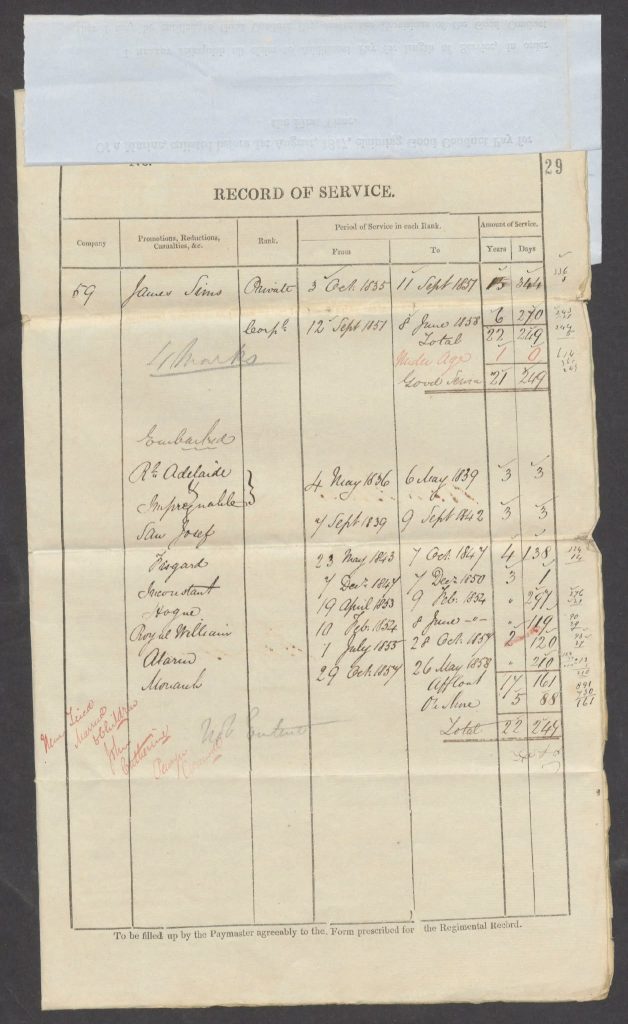 Of a Marine, enlisted before 1st August, 1847, claiming Good Conduct Pay for
the First Time.
29
RECORD OF SERVICE.
Company
Promotions, Reductions, Casualties, &c.
Rank.
Period of Service in each Rank.
From
To
Amount of Service.
Years
Days
59 James Sims Private 3 Oct. 1835 11 Sept 1851 15 344
Corpl 12 Sept 1851 8 June 1858 6 270
Total 22 249
Marks Under Age 1 0
Good Service 21 249
Embarked
Rl. Adelaide
Impregnable } 4 May 1836 6 May 1839 3 3
San Josef 7 Sept 1839 9 Sept 1842 3 3
Fisgard 23 May 1843 7 Oct. 1847 4 138
Inconstant 7 Decr. 1847 7 Decr. 1850 3 1
Hogue 19 April 1853 9 Feb. 1854 " 297
Royal William 10 Feb. 1854 8 June -"- " 119
Alarm 1 July 1855 28 Oct. 1857 2 120
Monarch 29 Oct. 1857 26 May 1858 " 210
Affloat 17 161
On Shore 5 88
Total 22 249
Married
Children
John
Catherine
To be filled up by the Paymaster agreeably to the Form prescribed for the Regimental Record.